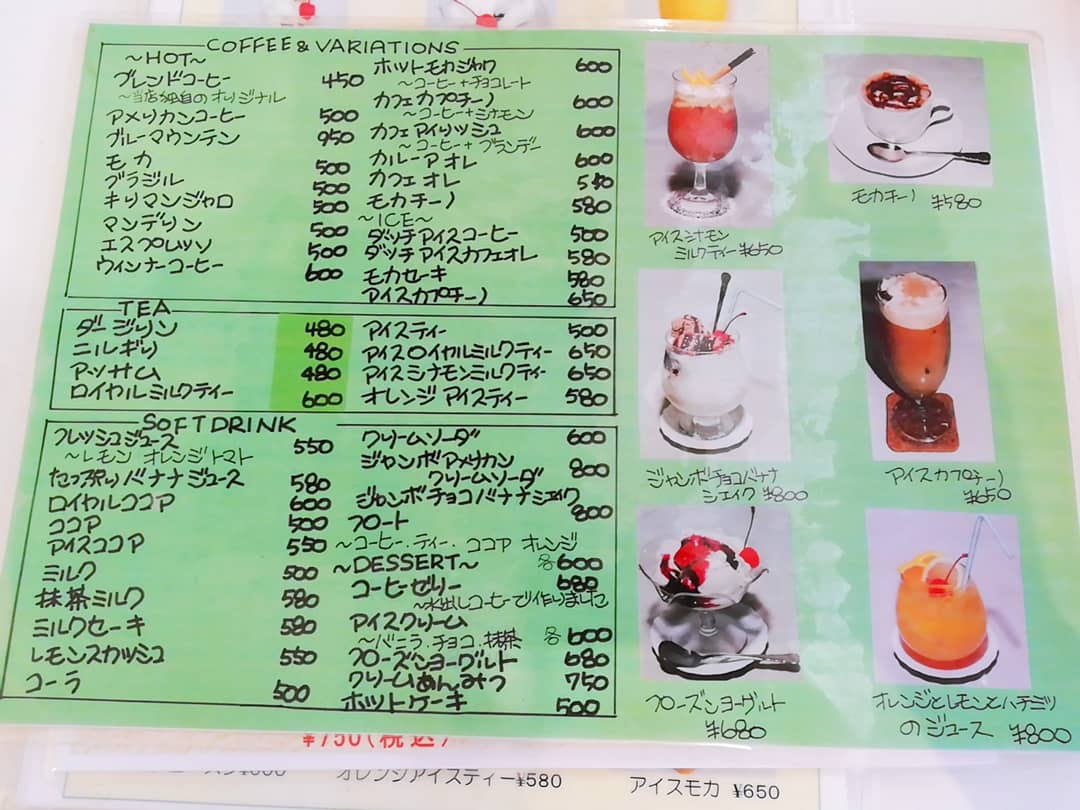 COFFEE & VARIATIONS
~HOT~
ブレンドコーヒー 450
~当店独自のオリジナル
アメリカンコーヒー 500
ブルーマウンテン 950
モカ 500
ブラジル 500
キリマンジャロ 500
マンデリン 500
エスプレッソ 500
ウィンナーコーヒー 600
ホットモカジャワ 600
~コーヒー+チョコレート
カフェカプチーノ 600
~コーヒー+シナモン
カフェアイリッシュ 600
~コーヒー+ブランデー
カルーアオレ 600
カフェオレ 540
モカチーノ 580
~ICE~
ダッチアイスコーヒー 500
ダッチアイスカフェオレ 580
モカセーキ 580
アイスカプチーノ 650
TEA
ダージリン 480
ニルギリ 480
アッサム 480
ロイヤルミルクティー 600
アイスティー 500
アイスロイヤルミルクティー 650
アイスシナモンミルクティー 650
オレンジアイスティー 580
SOFT DRINK
フレッシュジュース 550
~レモン オレンジ トマト
たっぷりバナナジュース 580
ロイヤルココア 600
ココア 500
アイスココア 550
ミルク 500
抹茶ミルク 580
ミルクセーキ 580
レモンスカッシュ 550
コーラ 500
クリームソーダ 600
ジャンボアメリカン
クリームソーダ 800
ジャンボチョコバナナシェイク 800
フロート
~コーヒー・ティー・ココア オレンジ 各600
~DESSERT~
コーヒーゼリー 680
~水出しコーヒーで作りました
アイスクリーム
~バニラ・チョコ・抹茶 各600
フローズンヨーグルト 680
クリームあんみつ 750
ホットケーキ 500
アイスシナモン
ミルクティー ¥650
モカチーノ ¥580
ジャンボチョコバナナ
シェイク ¥800
アイスカプチーノ
¥650
フローズンヨーグルト
¥680
オレンジとレモンとハチミツ
のジュース ¥800
¥750(税込)
オレンジアイスティー¥580
アイスモカ ¥650